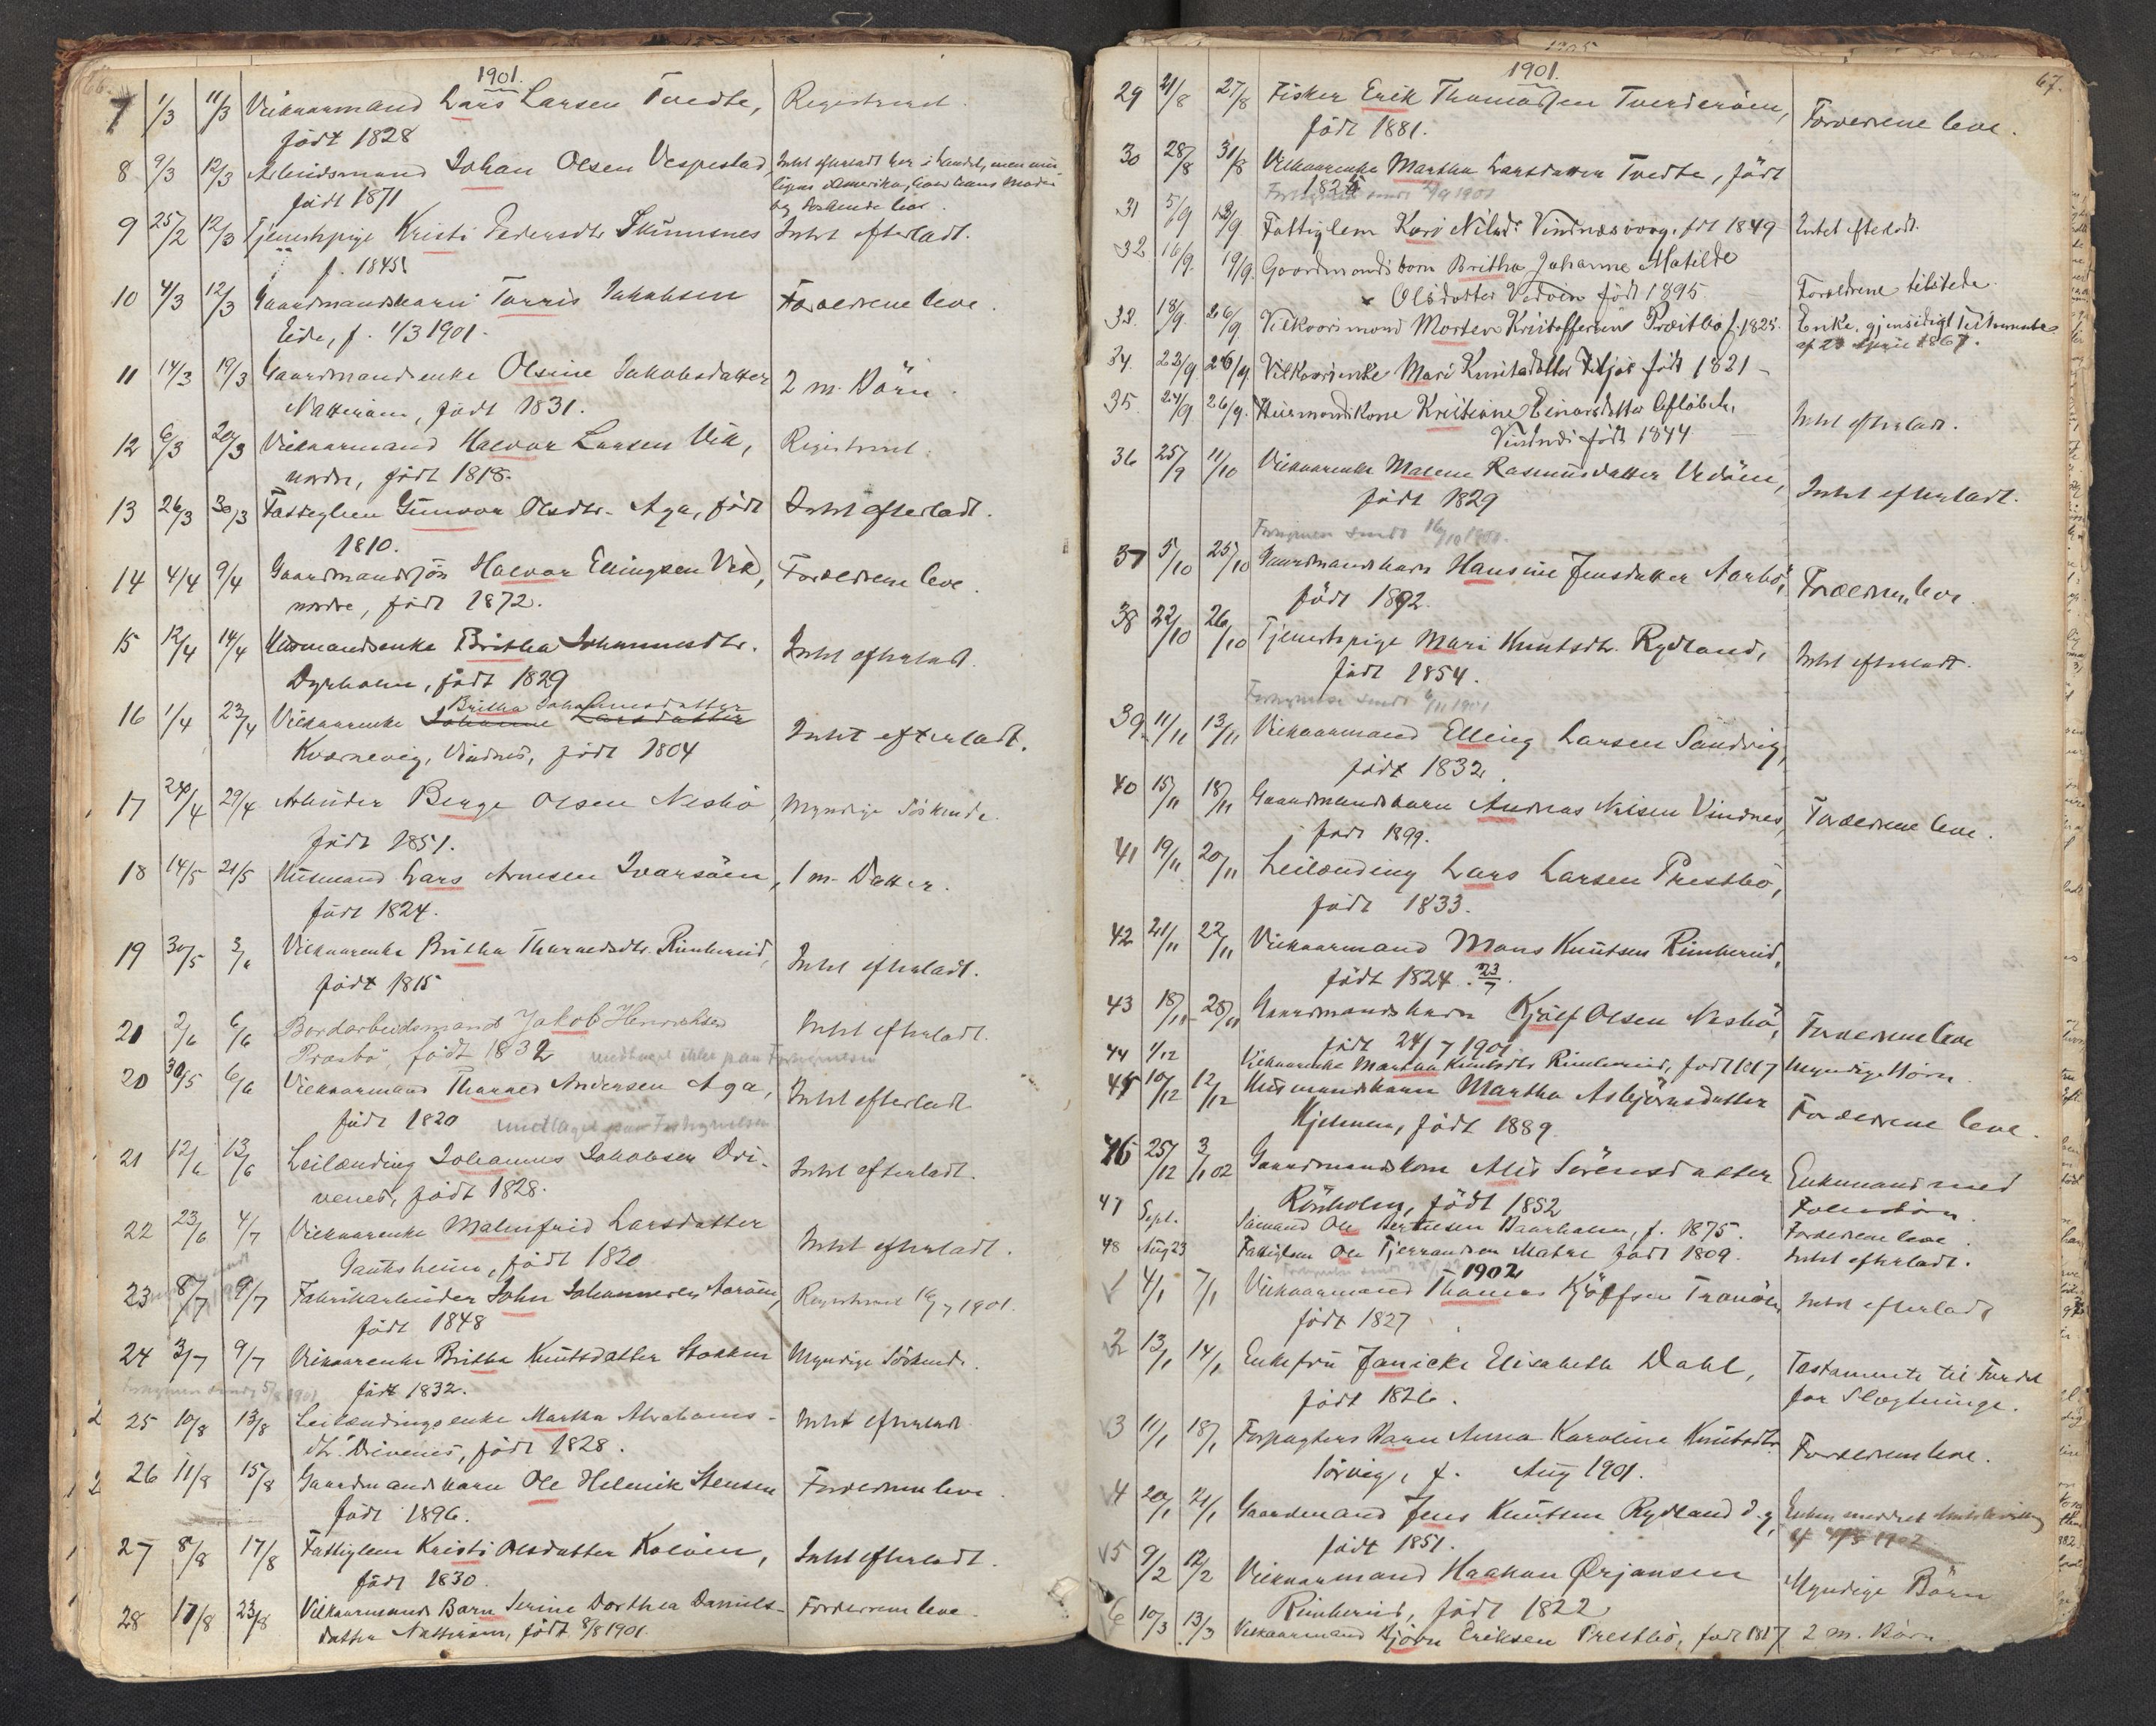 66.
1901.
7 1/3 11/3 Vilkaarmand Lars Larsen Tvedte, Registreret.
født 1828
8 9/3 12/3 Arbeidsmand Johan Olsen Vespestad, Intet efterladt her i Landet, men mu-
født 1871 ligens i Amerika, hvor hans Moder
og Søskende leve.
9 25/2 12/3 Tjenestepige Kristi Pedersdtr Skimmenes Intet efterladt.
f. 1845
10 4/3 12/3 Gaardmandsbarn Torris Jakobsen Forældrene leve.
Eide, f. 1/3 1901.
11 14/3 19/3 Gaardmandsenke Olsine Jakobsdatter 2 m. Børn.
Natterøen, født 1831.
12 6/3 20/3 Vilkaarmand Halvor Larsen Vik, Registreret.
nordre, født 1818.
13 26/3 30/3 Fattiglem Gunvor Olsdtr. Aga, født Intet efterladt.
1810.
14 4/4 9/4 Gaardmandssøn Halvor Ellingsen Vik, Forældrene leve.
nordre, født 1872.
15 12/4 14/4 Husmandsenke Britha Johannesdtr. Intet efterladt.
Dyrholm, født 1829
Britha Johannesdatter
16 1/4 23/4 Vilkaarenke Johanne Larsdatter Intet efterladt.
Kværnevig, Vindnes, født 1804
17 24/4 29/4 Arbeider Berge Olsen Nesbø Myndige Søskende.
født 1851.
18 14/5 21/5 Husmand Lars Arnesen Ivarsøen, 1 m. Datter.
født 1824.
19 30/5 3/6 Vilkaarenke Britha Tharaldsdtr. Rimbereid, Intet efterladt.
født 1815
20 2/6 6/6 Bordarbeidsmand Jakob Henrichsen Intet efterladt.
født 1832 medtaget ikke paa Fortegnelsen
20 30/5 6/6 Vilkaarmand Tharald Andersen Aga, Intet efterladt
født 1820 medtaget paa Fortegnelsen
21 12/6 13/6 Leilænding Johannes Jakobsen Dri- Intet efterladt.
venes, født 1828.
22 23/6 4/7 Vilkaarenke Malenfrid Larsdatter Intet efterladt.
født 1820
23 8/7 9/7 Fabrikarbeider John Johannesen Registreret 16/7 1901.
født 1848
24 3/7 9/7 Vilkaarenke Britha Knutsdatter Stokken Myndige Søskende.
født 1832.
25 10/8 13/8 Leilændingsenke Martha Abrahams- Intet efterladt.
dtr. Drivenes, født 1828.
26 11/8 15/8 Gaardmandsbarn Ole Helmik Stensen Forældrene leve.
født 1896.
27 8/8 17/8 Fattiglem Kristi Olsdatter Koløen, Intet efterladt.
født 1830.
28 17/8 23/8 Vilkaarmands Barn Serine Dorthea Daniels- Forældrene leve.
datter Natterøen, født 8/8 1901.
67.
1901.
29 21/8 27/8 Fisker Erik Thomassen Tverderøen, Forældrene leve.
født 1881.
30 28/8 31/8 Vilkaarenke Martha Larsdatter Tvedte, født
182
31 5/9 13/9 Fattiglem Kari Nilsd: Vindnæsvaag, fdt 1849 Intet efterladt.
32 16/9 19/9 Gaardmandsbarn Britha Johanne Matilde Forældrene tilstede.
Olsdatter Vedøen født 1895.
33. 18/9 26/9 Vilkaarsmand Morten Kristoffersen Præstbø f. 1825. Enke, gjensidigt Testamente
af 23 April 1867.
34. 23/9 26/9. Vilkaarsenke Mari Knutsdatter født 1821 —
35. 24/9 26/9. Husmandskone Kristiane Einarsdatter Intet efterladt.
Vindnes født 1844
36 25/9 11/10 Vilkaarenke Malene Rasmusdatter Vedøen, Intet efterladt.
født 1829
Fortegnelsen sendt 16/10 1901.
37 5/10 25/10 Gaardmandsbarn Hansine Jensdatter Aarbø, Forældrene leve.
født 1892.
38 22/10 26/10 Tjenestepige Mari Knutsdtr. Rydland, Intet efterladt.
født 1854.
39. 11/11 13/11 Vilkaarmand Elling Larsen Sandvig,
født 1832.
40 15/11 18/11 Gaardmandsbarn Andreas Nilsen Vindnes, Forældrene leve.
født 1899.
41 19/11 20/11 Leilænding Lars Larsen Prestbø,
født 1833.
42 21/11 22/11 Vilkaarmand Mons Knutsen Rimbereid,
født 1824. 23/7.
43 18/11 28/11 Gaardmandsbarn Kjølf Olsen Nesbø, Forældrene leve
født 24/7 1901.
44 1/12 Vilkaarenke Martha Knutsdtr Rimbereid, født 1817 Myndige Børn.
45 10/12 12/12 Husmandsbarn Martha Asbjørnsdatter Forældrene leve.
Kjelmen, født 1889.
46 25/12 3/1 02 Gaardmandskone Alis Sørensdatter Enkemand med
Rønholm, født 1852 Fællesbørn.
47 Sept. Sømand Ole Bertilsen Baarholm, f. 1875. Forældrene leve.
48 Aug 23 Fattiglem Ole Tjerandsen Matre født 1809. Intet efterladt.
1902
4/1 7/1 Vilkaarmand Thomas Kjølfsen Tranøen, Intet efterladt
født 1827
2 13/1 14/1 Enkefru Janicke Elisabeth Dahl, Testamente til Fordel
født 1826. for Slægtninge.
3 11/1 18/1 Forpagters Barn Anna Karoline Knutsdtr. Forældrene leve.
f. Aug 1901.
4 20/1 21/1 Gaardmand Jens Knutsen Rydland d.y,
født 1851.
5 9/2 12/2 Vilkaarmand Haakon Ørjansen Myndige Børn
Rimbereid, født 1822
6 10/3 13/3 Vilkaarmand Bjørn Eriksen Prestbø, født 1817 2 m. Børn